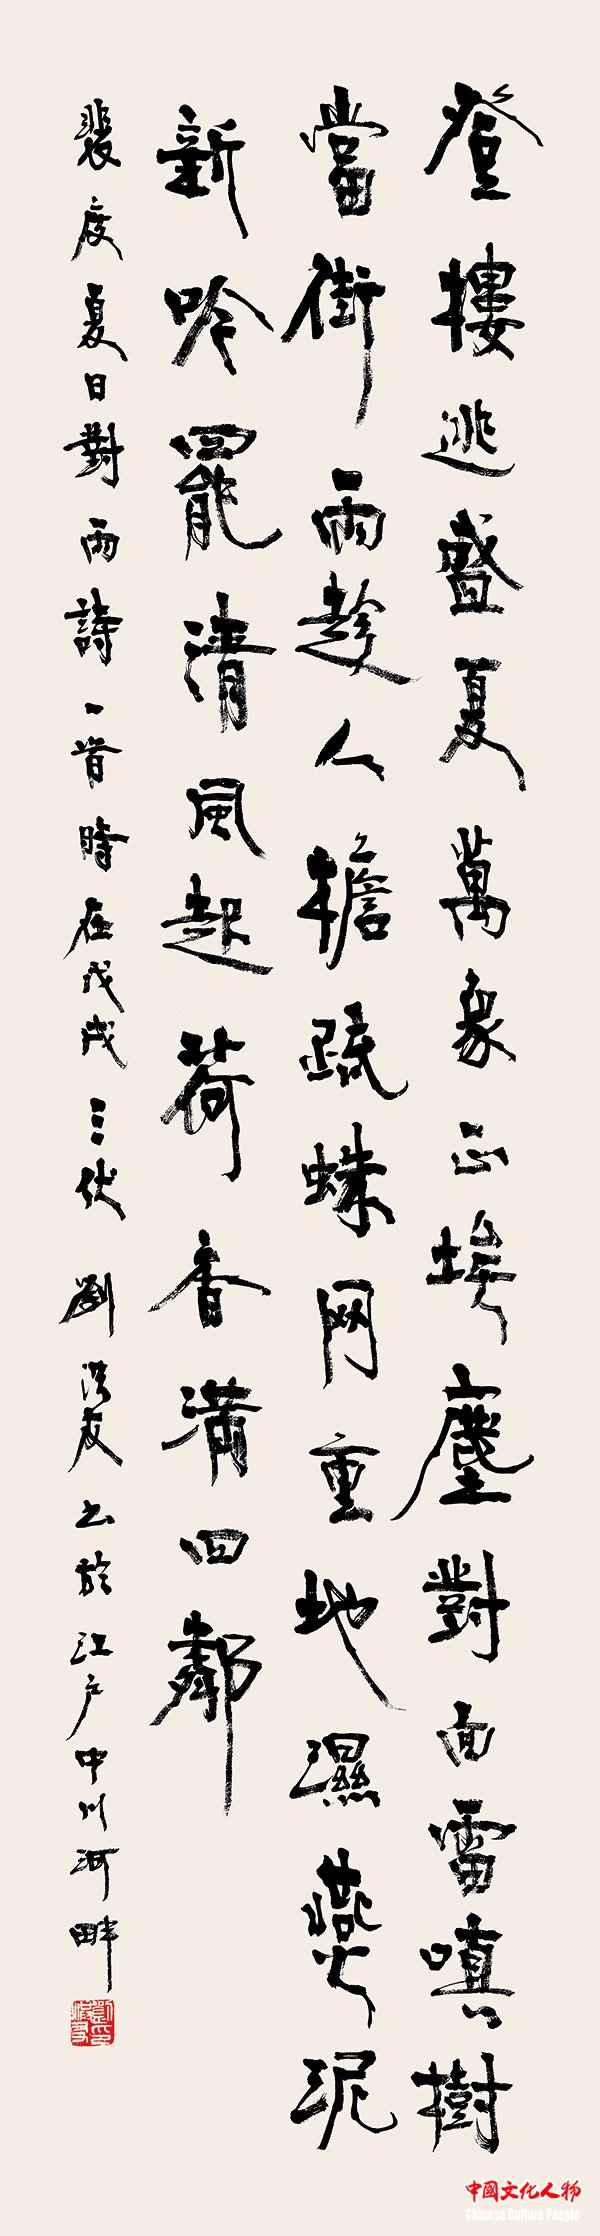 登樓逃盛夏萬象正埃塵對面雷嗔樹
當街雨趁人檐疏蛛网重地濕燕泥
新吟罷清風起荷香滿四鄰
裴度夏日對雨詩一首時在戊戌三伏劉洪友书於江户中川河畔
中國文化人物
Chinese Culture People